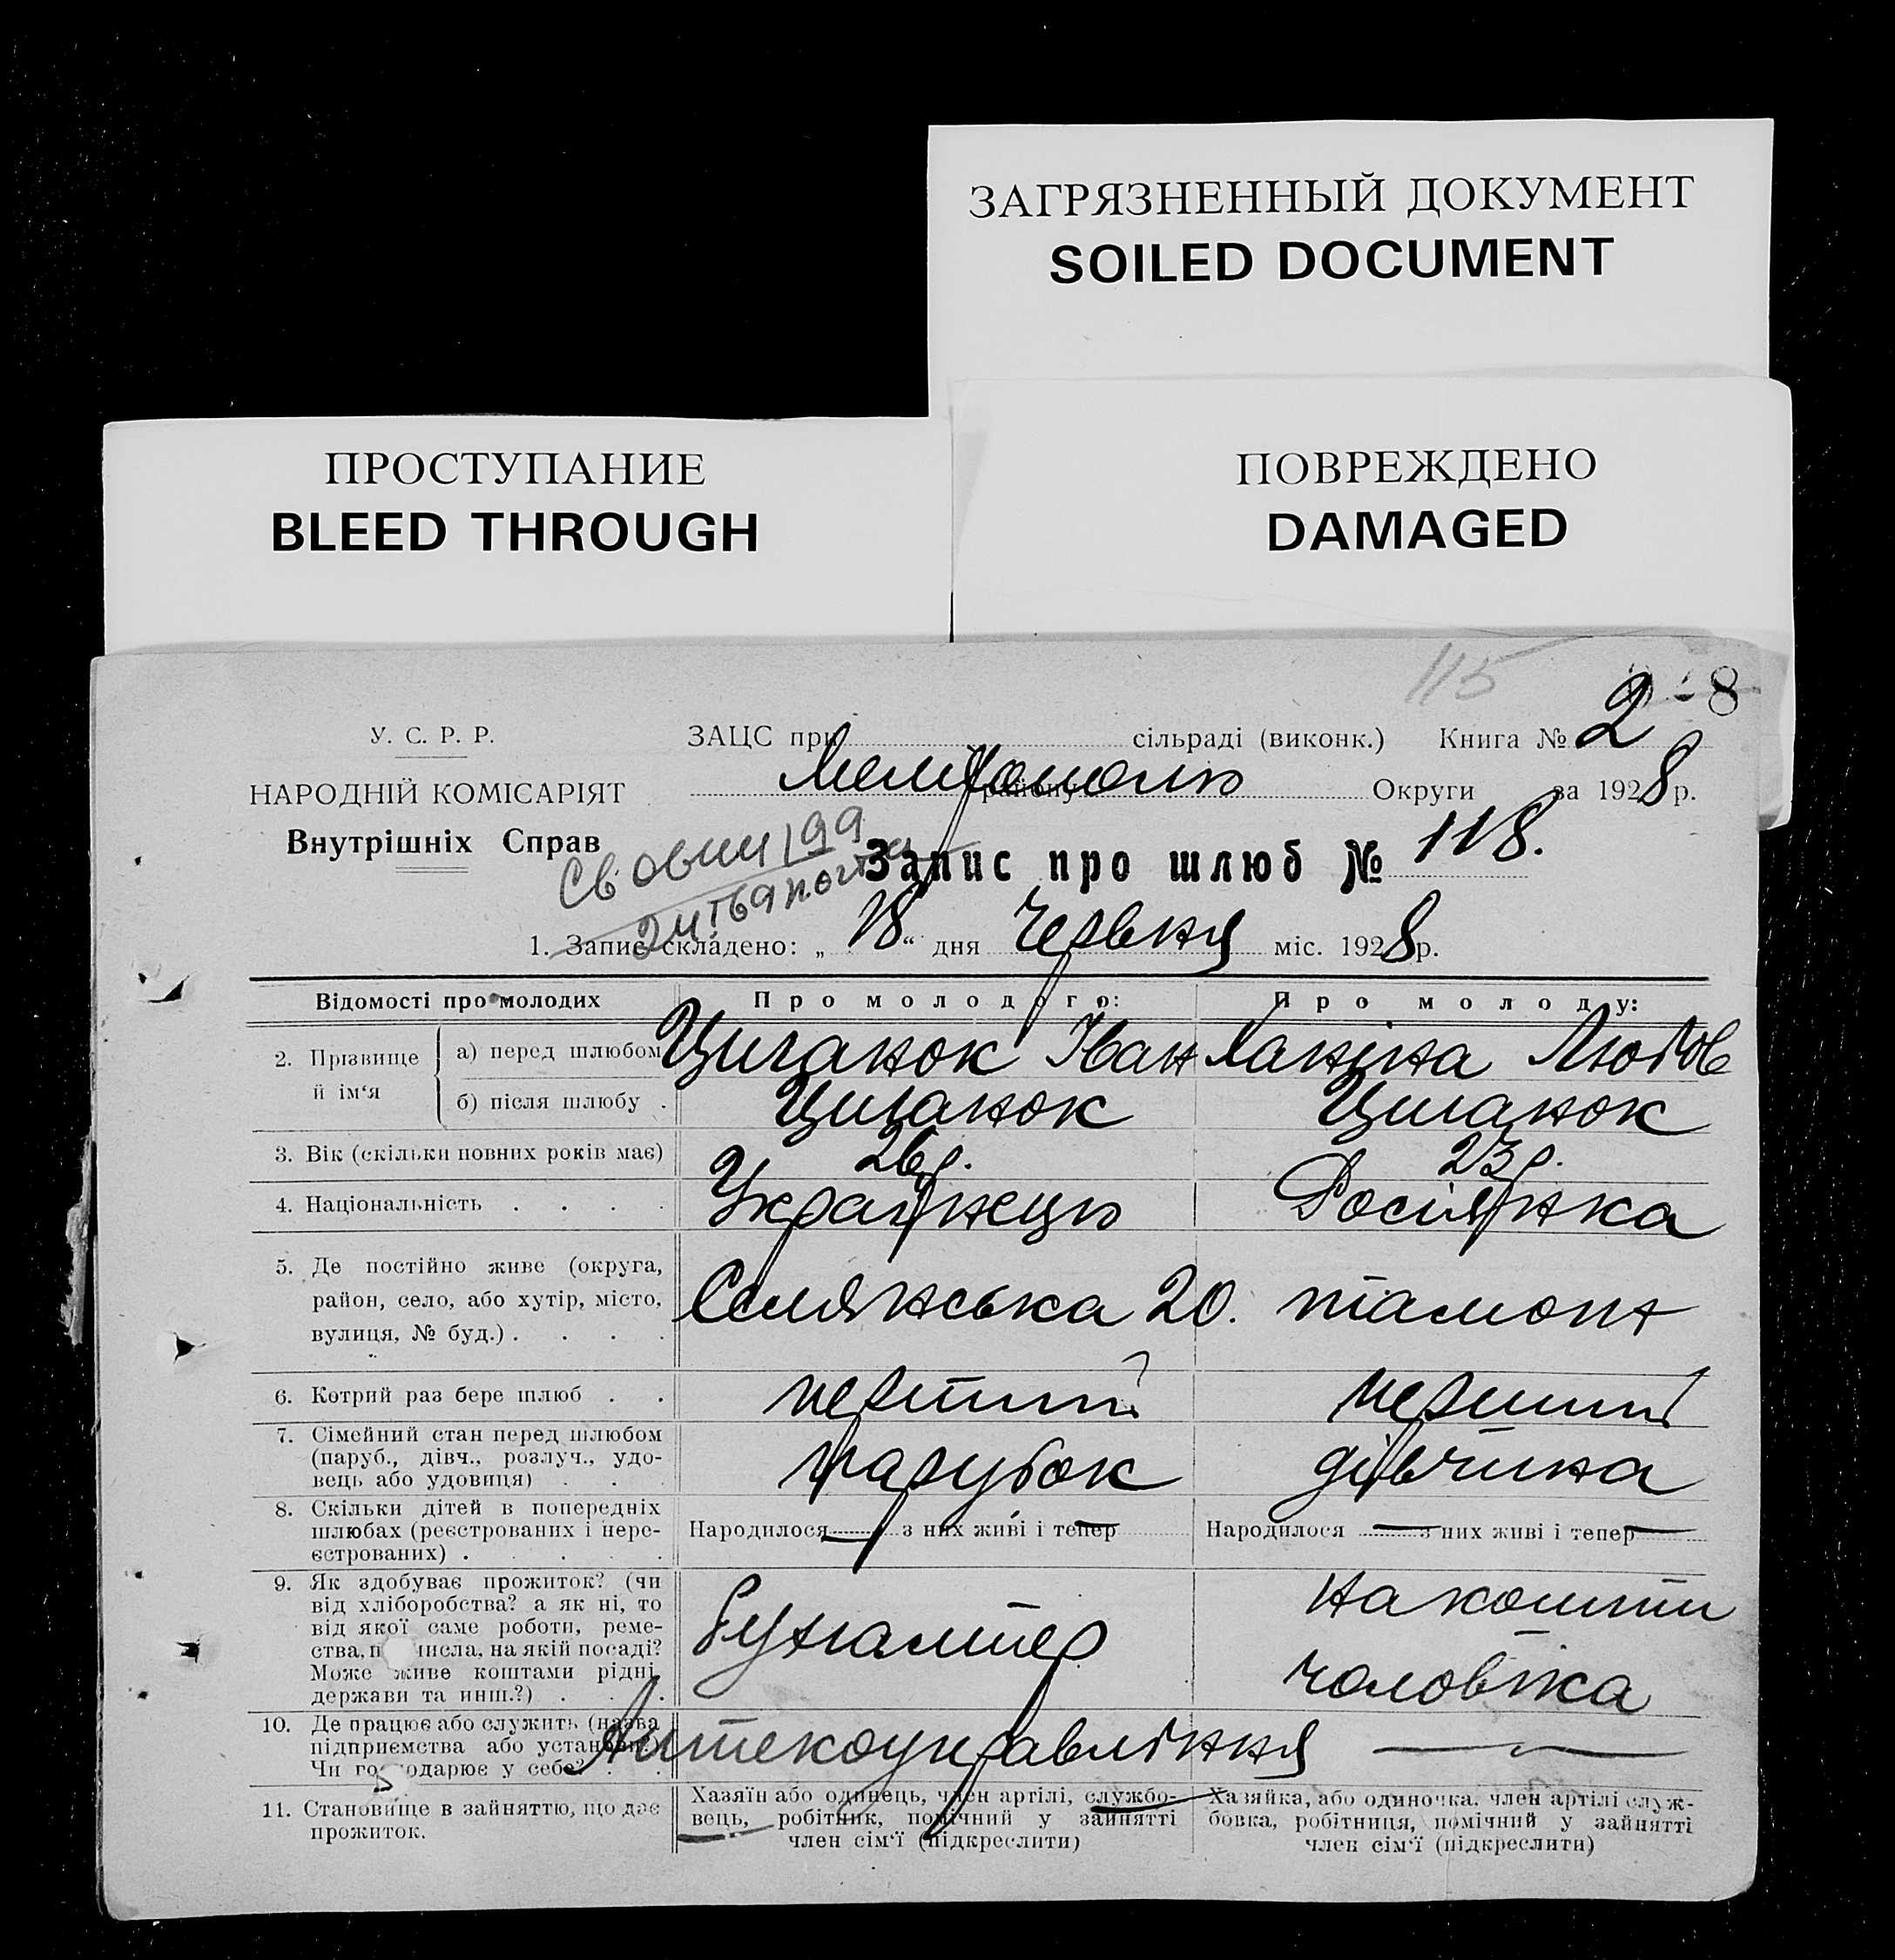 ЗАГРЯЗНЕННЫЙ ДОКУМЕНТ
SOILED DOCUMENT
ПРОСТУПАНИЕ
BLEED THROUGH
ПОВРЕЖДЕНО
DAMAGED
115
8
У. С. Р. Р.
НАРОДНІЙ КОМІСАРІЯТ
Внутрішніх Справ
ЗАЦС при сільраді (виконк.) Книга № 2
району Округи за 1928 р.
Запис про шлюб № 118.
1. Запис складено: „18“ дня Червня міс. 1928 р.
Відомості про молодих
Про молодого:
Про молоду:
2. Прізвище й ім‘я
а) перед шлюбом Циганок Іван Ханіна Любов
б) після шлюбу . Циганок Циганок
3. Вік (скільки повних років має) 26 р. 23 р.
4. Національність . . . . Українець Росіянка
5. Де постійно живе (округа,
район, село, або хутір, місто,
вулиця, № буд.) . . . .
Селянська 20. тамож
6. Котрий раз бере шлюб . . перший перший
7. Сімейний стан перед шлюбом
(паруб., дівч., розлуч., удо-
вець або удовиця) . . .
парубок дівчина
8. Скільки дітей в попередніх
шлюбах (реєстрованих і нере-
єстрованих) . . . . .
Народилося — з них живі і тепер —
Народилося — з них живі і тепер —
9. Як здобуває прожиток? (чи
від хліборобства? а як ні, то
від якої саме роботи, реме-
ства, п мисла, на якій посаді?
Може живе коштами рідні,
держави та инш.?) . . .
Бухгалтер
на кошти
чоловіка
10. Де працює або служить (назва
підприємства або установи.)
Чи господарює у себе? . .
Аптекоуправління —
11. Становище в зайняттю, що дає
прожиток.
Хазяїн або одинець, член артілі, службо-
вець, робітник, помічний у зайнятті
член сім‘ї (підкреслити)
Хазяйка, або одиночка, член артілі служ-
бовка, робітниця, помічний у зайнятті
член сім‘ї (підкреслити)